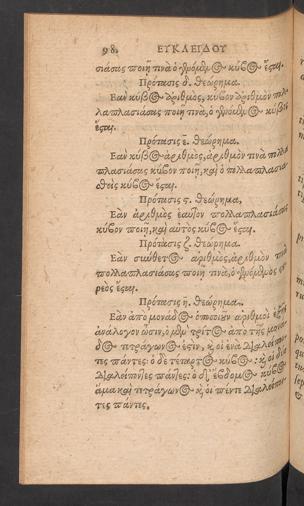 98. ΕΥΚΛΕΙΔΟΥ
σιάσας ποιῇ τινὰ ὁ γενόμενος κύβος ἔσται.
Πρότασις δ. θεώρημα.
Ἐὰν κύβος ἀριθμὸς, κύβον ἀριθμὸν πολ
λαπλασιάσας ποιῇ τινὰ, ὁ γενόμενος κύβος
ἔσται.
Πρότασις ε. θεώρημα.
Ἐὰν κύβος ἀριθμὸς, ἀριθμὸν τινὰ πολλα
πλασιάσας κύβον ποιῇ, καὶ ὁ πολλαπλασια
σθεὶς κύβος ἔσται.
Πρότασις ϛ. θεώρημα.
Ἐὰν ἀριθμὸς ἑαυτὸν πολλαπλασιάσας
κύβον ποιῇ, καὶ αὐτὸς κύβος ἔσται.
Πρότασις ζ. θεώρημα.
Ἐὰν σύνθετος ἀριθμὸς, ἀριθμὸν τινὰ
πολλαπλασιάσας ποιῇ τινὰ, ὁ γενόμενος στε
ρεὸς ἔσται.
Πρότασις η. θεώρημα.
Ἐὰν ἀπὸ μονάδος ὁποσοιοῦν ἀριθμοὶ ἑξῆς
ἀνάλογον ὦσιν, ὁ μὲν τρίτος ἀπὸ τῆς μονά
δος τετράγωνός ἐστιν, κ̀ οἱ ἕνα διαλείπον
τες πάντες: ὁ δὲ τέταρτος κύβος: κ̀ οἱ δύο
διαλείποντες πάντες: ὁ δὲ ἕβδομος κύβος
ἅμα καὶ τετράγωνος κ̀ οἱ πέντε διαλείπον
τες πάντες.